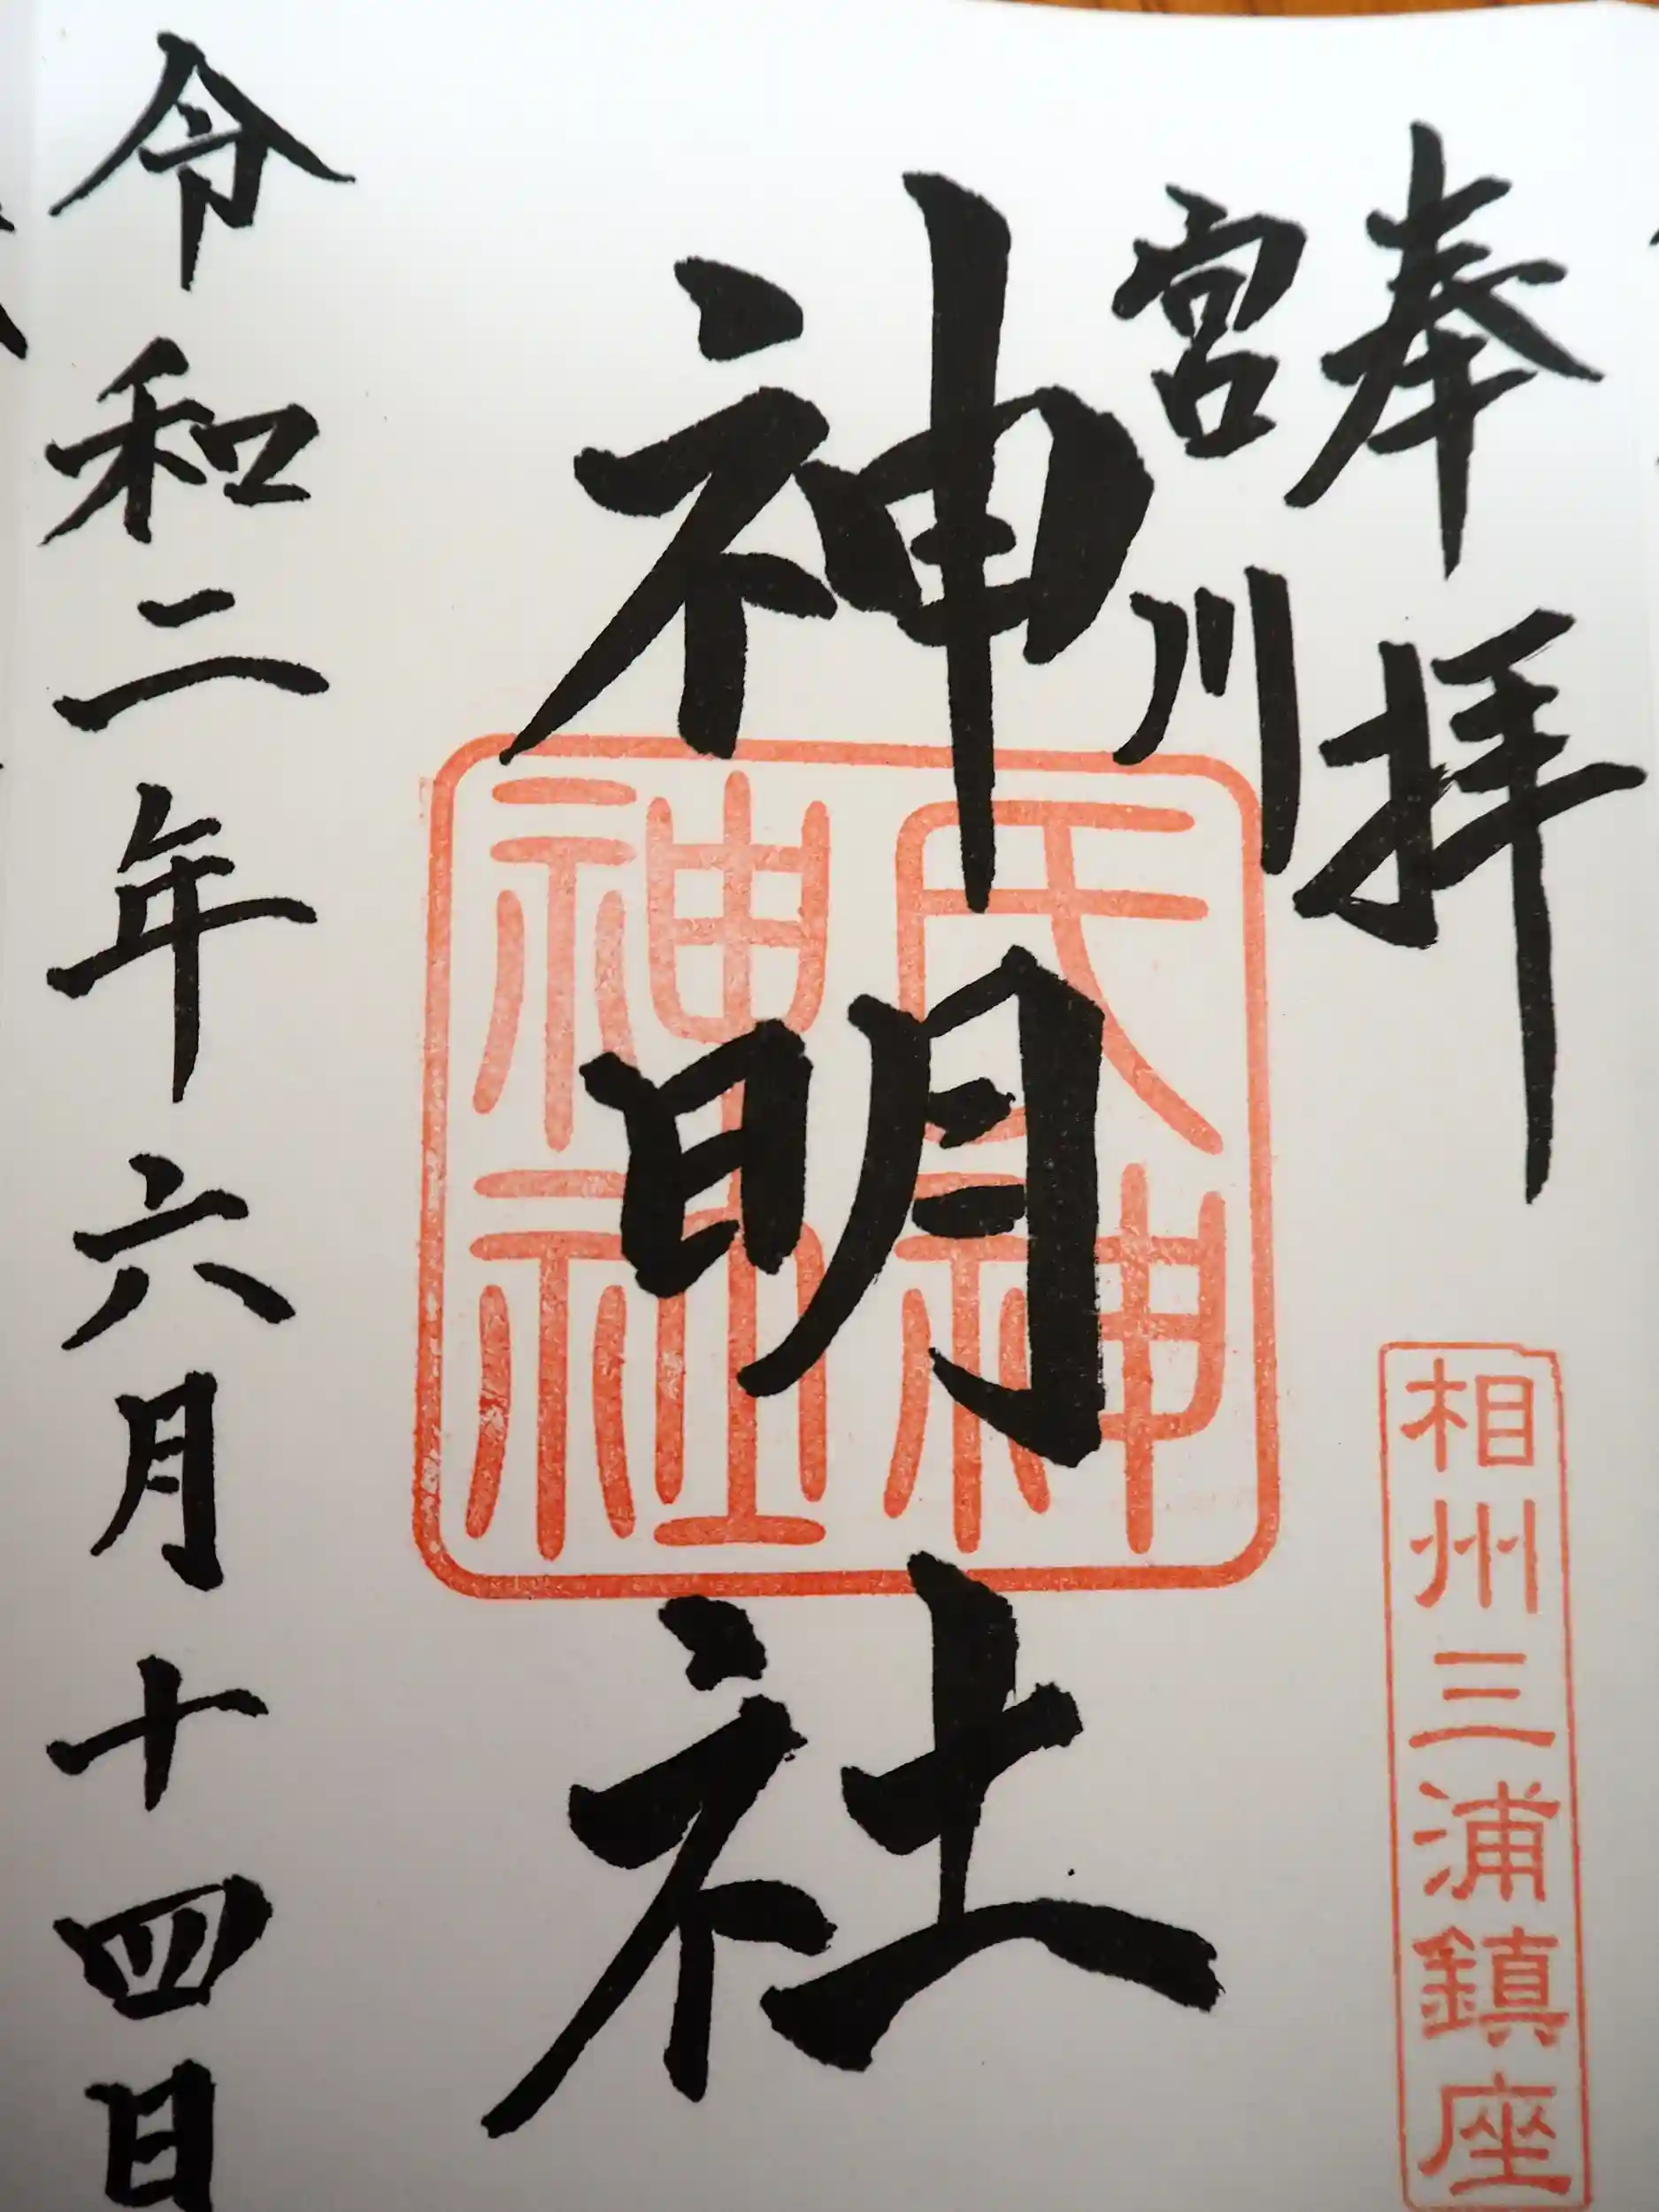 奉拝
相州三浦鎮座
宮川
神明社
氏神
神社
令和二年六月十四日